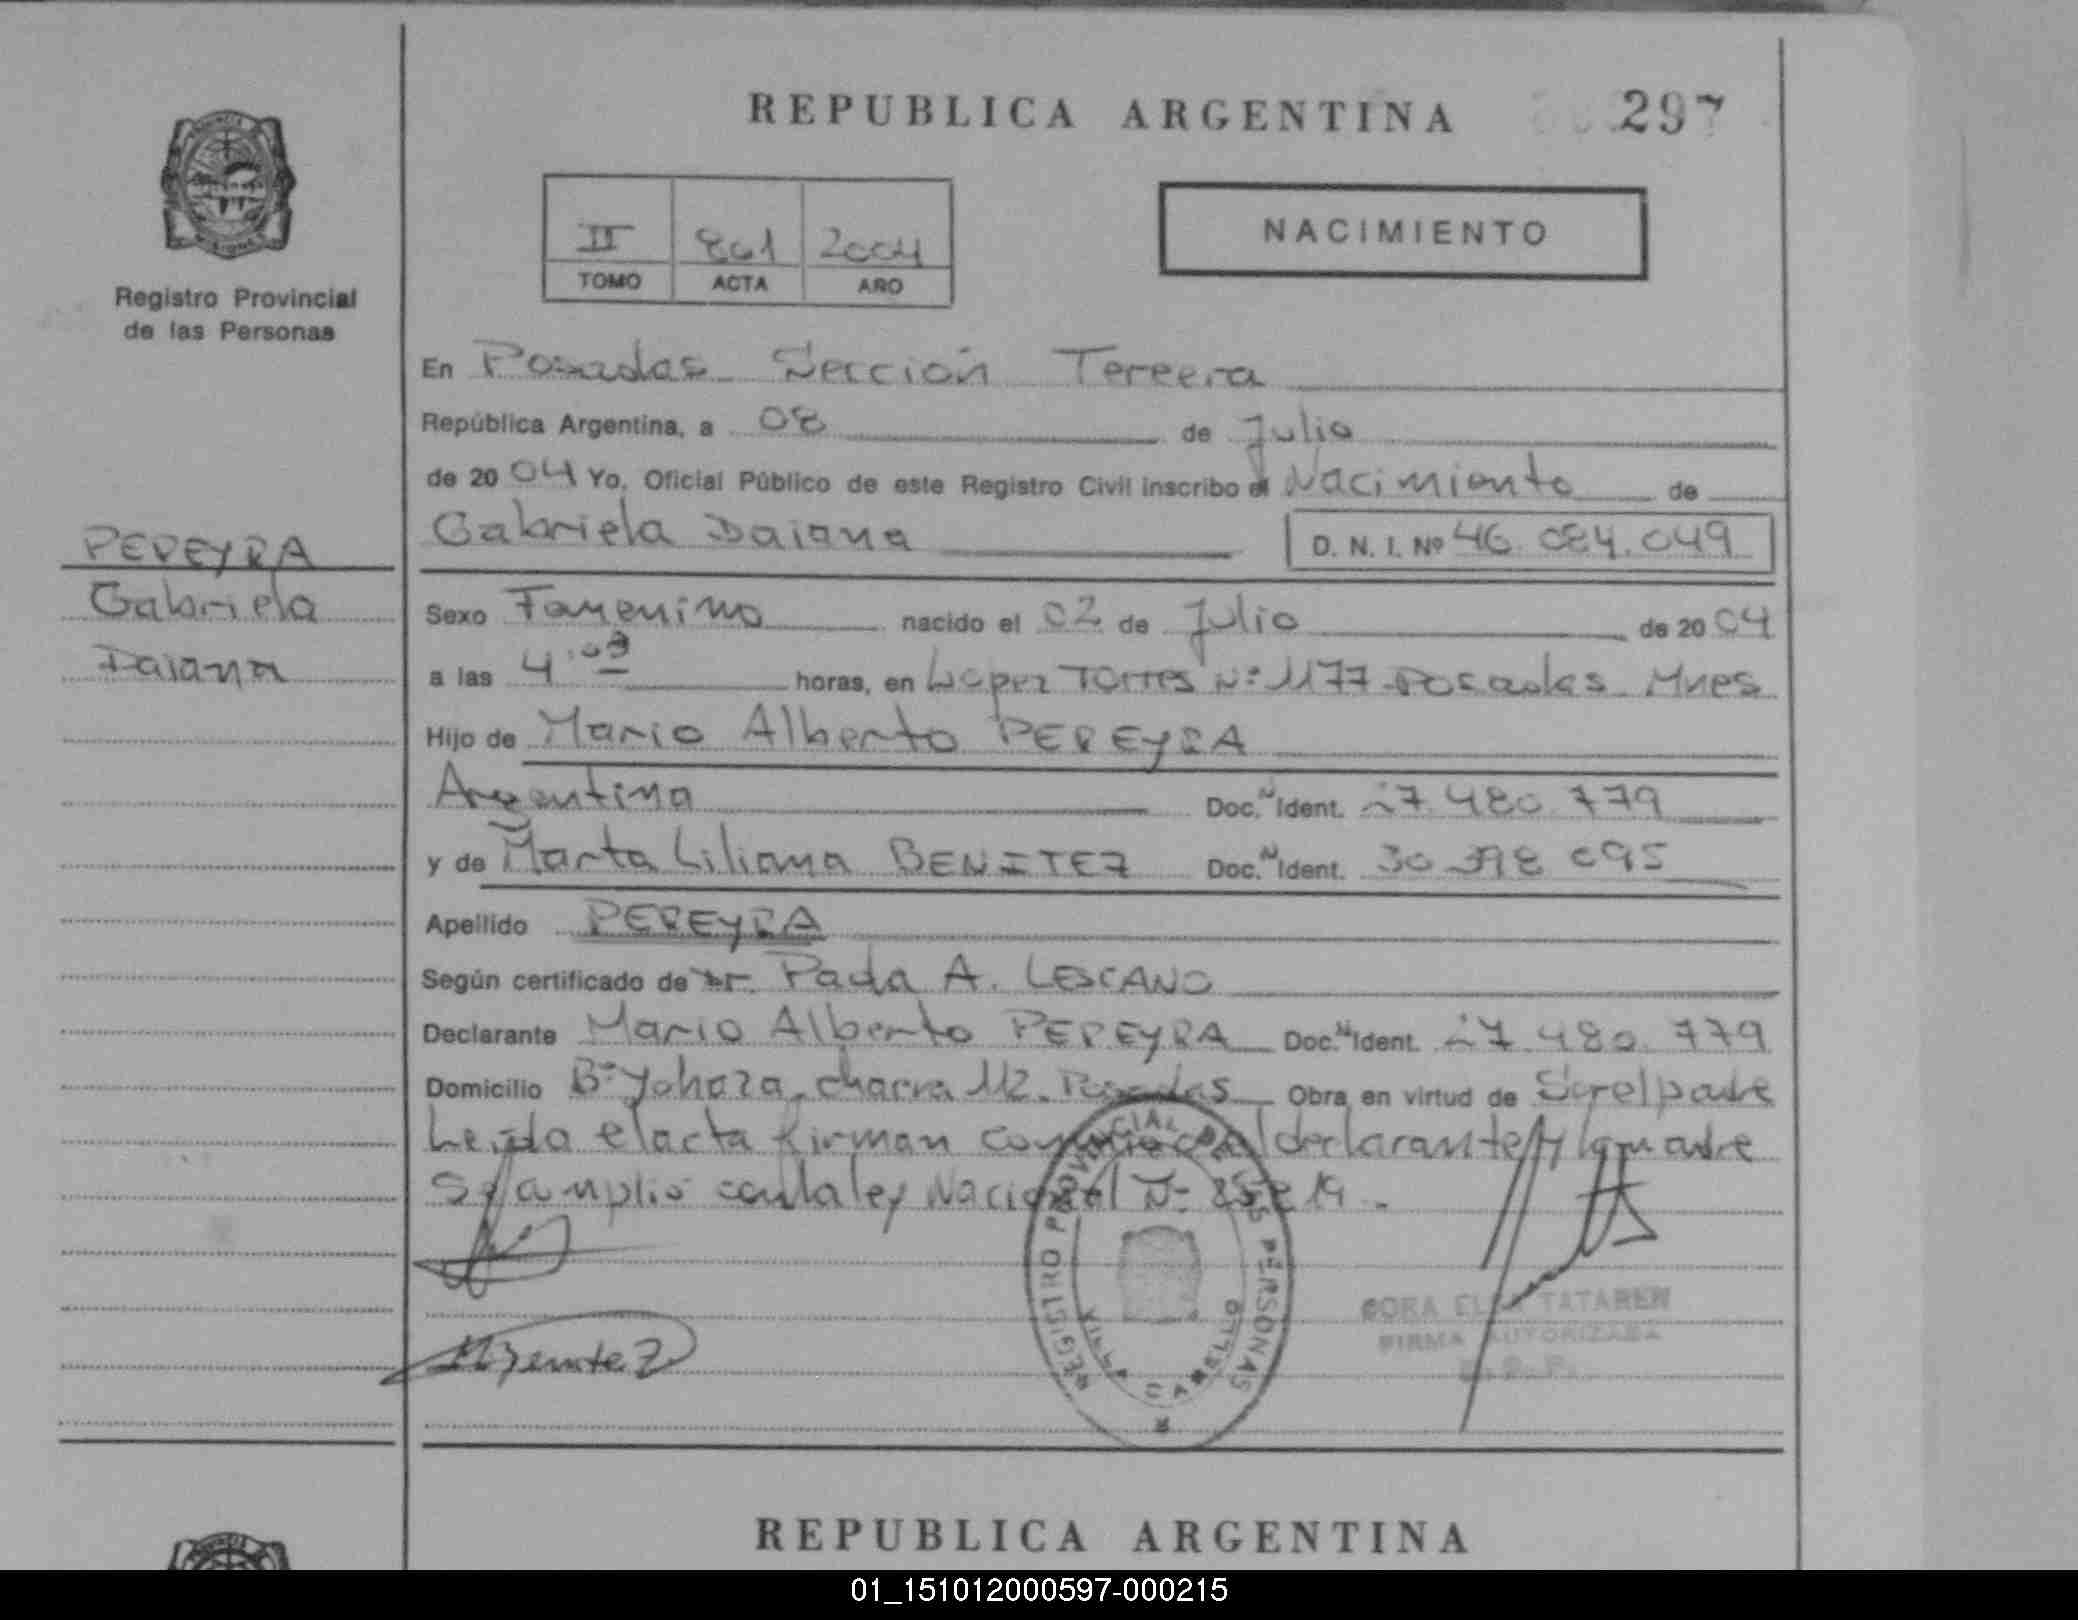 REPUBLICA ARGENTINA
297
II 861 2004
TOMO ACTA AÑO
NACIMIENTO
Registro Provincial
de las Personas
En Posadas Sección Tercera
República Argentina, a 08 de Julio
de 2004 Yo, Oficial Público de este Registro Civil inscribo el Nacimiento de
Gabriela Daiana D. N. I. Nº 46.084.049
PEREYRA
Gabriela
Daiana
Sexo Femenino nacido el 02 de Julio de 2004
a las 4:09 horas, en Lopez Torres Nº 1177 Posadas Mnes
Hijo de Mario Alberto PEREYRA
Argentina Doc. N Ident. 27.480.779
y de Marta Liliana BENITEZ Doc. N Ident. 30 398 095
Apellido PEREYRA
Según certificado de Dr. A. LESCANO
Declarante Mario Alberto PEREYRA Doc. N Ident. 27.480.779
Domicilio Bº Yohaza, charra 112. Posadas Obra en virtud de Ser el padre
Leida el acta firman conmigo el declarante y la madre
Se cumplio con la ley Nacional Nº
MBenitez
REGISTRO PROVINCIAL DE LAS PERSONAS
VILLA CABELLO
TATAREN
FIRMA AUTORIZADA
REPUBLICA ARGENTINA
01_151012000597-000215